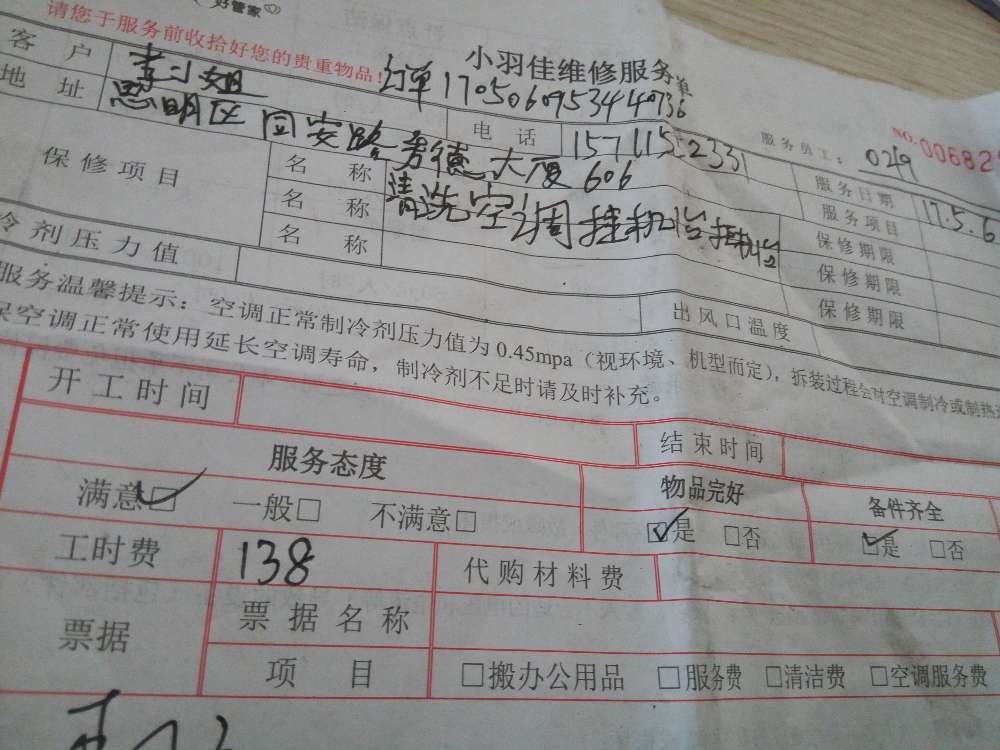 好管家
请您于服务前收拾好您的贵重物品!
小羽佳维修服务单
NO.00682
客 户 李小姐 订单17050609534440736
电 话 15711522331
服务员工: 0219
地 址 思明区 秀德大厦606
服务日期 17.5.6
保修项目
名 称 清洗空调挂机1台
服务项目
名 称
保修期限
名 称
保修期限
保修期限
冷剂压力值
出风口温度
服务温馨提示:空调正常制冷剂压力值为0.45mpa(视环境、机型而定),拆装过程会对空调制冷或制热
保空调正常使用延长空调寿命,制冷剂不足时请及时补充。
开工时间
结束时间
服务态度
物品完好
备件齐全
满意□ 一般□ 不满意□
□是 □否
□是 □否
工时费 138
代购材料费
票据
票据名称
项 目
□搬办公用品 □服务费 □清洁费 □空调服务费